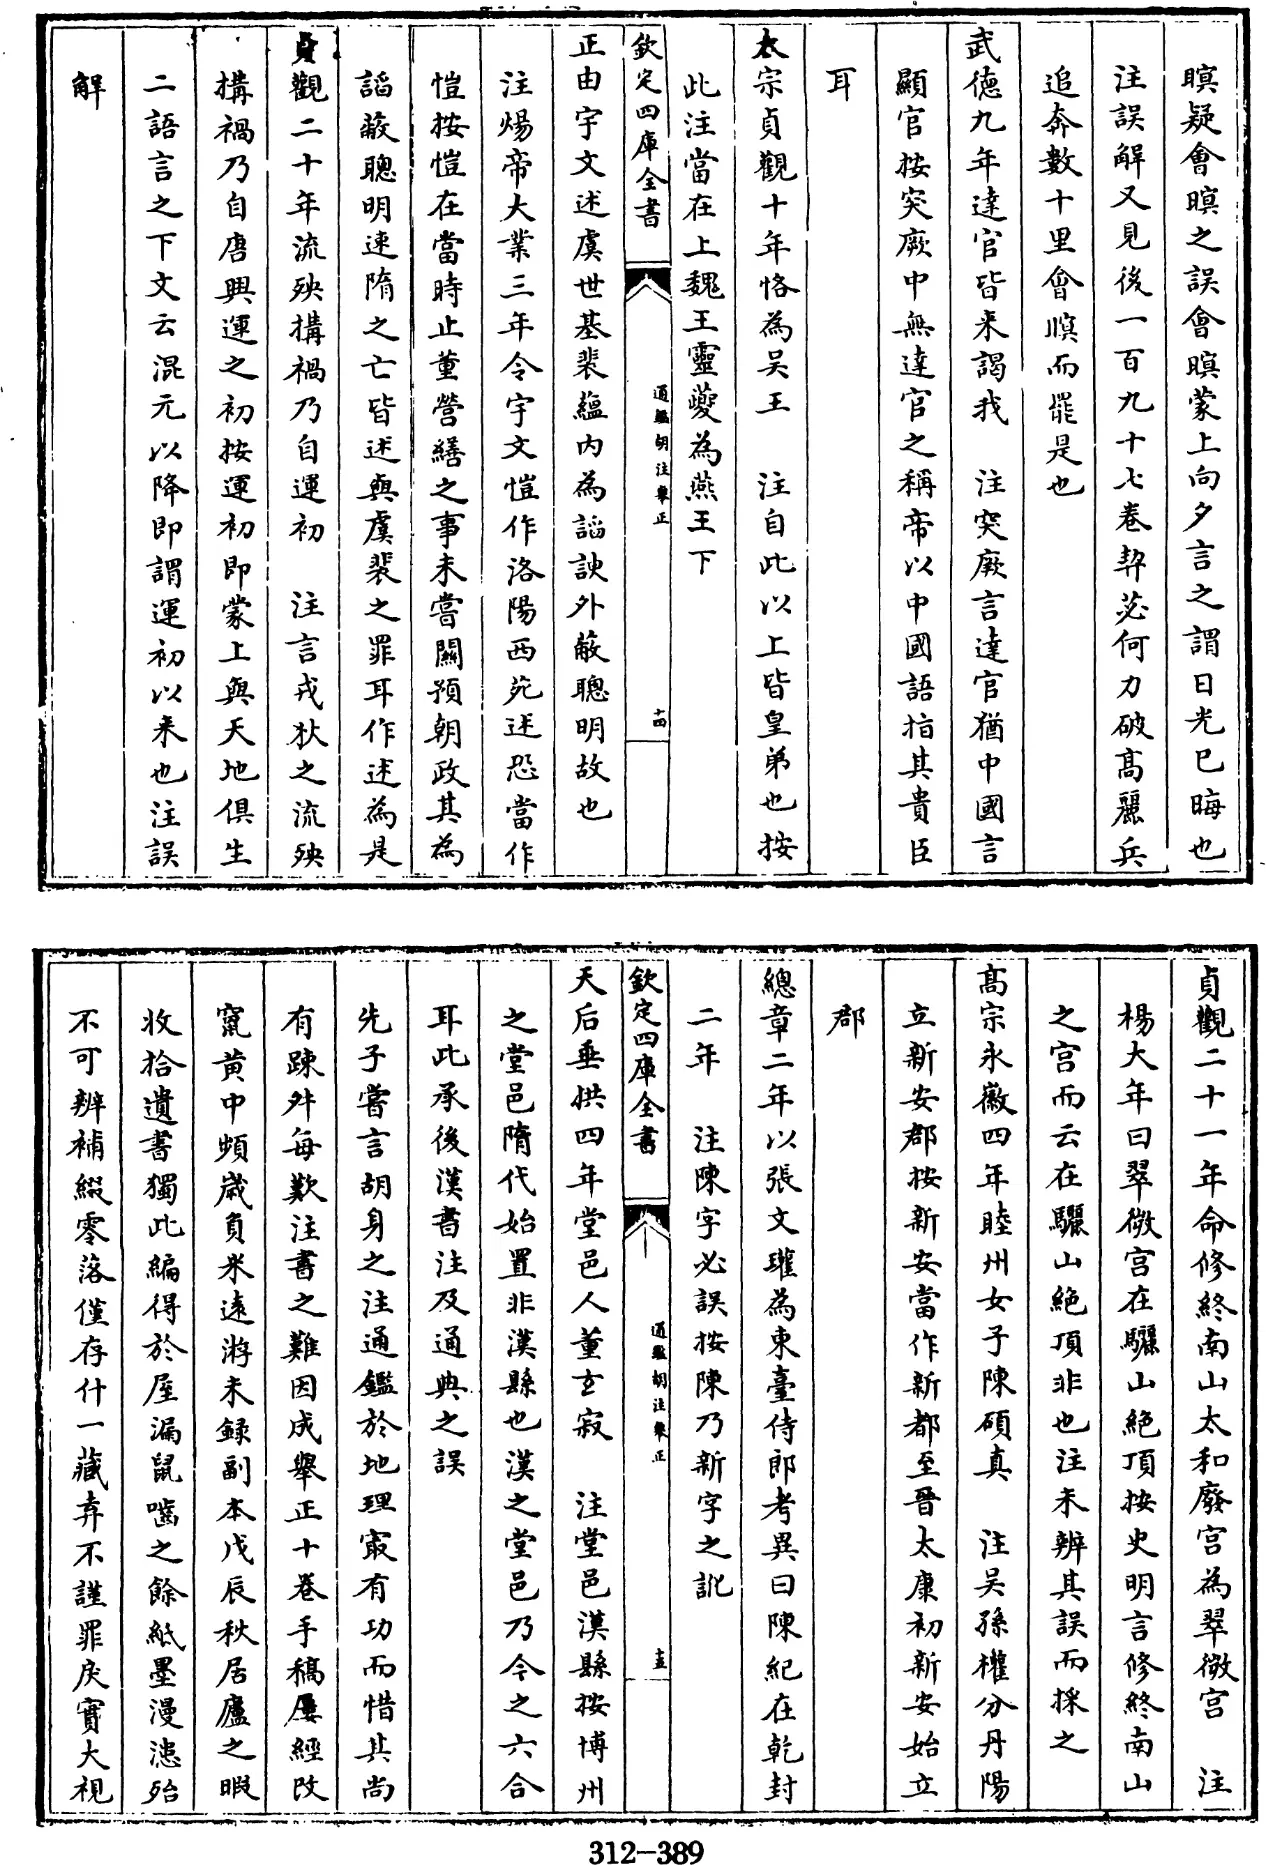 瞑疑會瞑之誤會瞑蒙上向夕言之謂日光已晦也
注誤解又見後一百九十七卷契苾何力破髙麗兵
追奔數十里會瞑而罷是也
武徳九年達官皆来謁我　注突厥言達官猶中國言
顯官按突厥中無達官之稱帝以中國語指其貴臣
耳
太宗貞觀十年恪為吴王　注自此以上皆皇弟也按
此注當在上魏王靈夔為燕王下
欽定四庫全書
通鑑胡注舉正
十四
正由宇文述虞世基裴藴内為謟諛外蔽聰明故也
注煬帝大業三年令宇文愷作洛陽西苑述恐當作
愷按愷在當時止董營繕之事未嘗關預朝政其為
謟蔽聰明速隋之亡皆述與虞裴之罪耳作述為是
貞觀二十年流殃搆禍乃自運初　注言戎狄之流殃
搆禍乃自唐興運之初按運初即蒙上與天地俱生
二語言之下文云混元以降即謂運初以来也注誤
解
貞觀二十一年命修終南山太和廢宫為翠微宫　注
楊大年曰翠微宫在驪山絶頂按史明言修終南山
之宫而云在驪山絶頂非也注未辨其誤而採之
髙宗永徽四年睦州女子陳碩真　注吴孫權分丹陽
立新安郡按新安當作新都至晉太康初新安始立
郡
總章二年以張文瓘為東臺侍郎考異曰陳紀在乾封
二年　注陳字必誤按陳乃新字之訛
欽定四庫全書
通鑑胡注舉正
十五
天后垂拱四年堂邑人董玄寂　注堂邑漢縣按博州
之堂邑隋代始置非漢縣也漢之堂邑乃今之六合
耳此承後漢書注及通典之誤
先子嘗言胡身之注通鑑於地理㝡有功而惜其尚
有踈舛每歎注書之難因成舉正十卷手稿屢經改
竄黄中頻歳負米逺游未録副本戊辰秋居廬之暇
收拾遺書獨此編得於屋漏鼠嚙之餘紙墨漫漶殆
不可辨補綴零落僅存什一藏弆不謹罪戾實大視
312-389